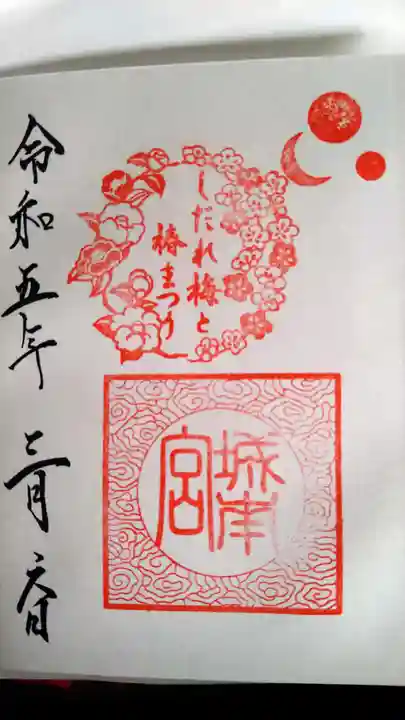 しだれ梅と
椿まつり
城南宮
令和五年 三月六日